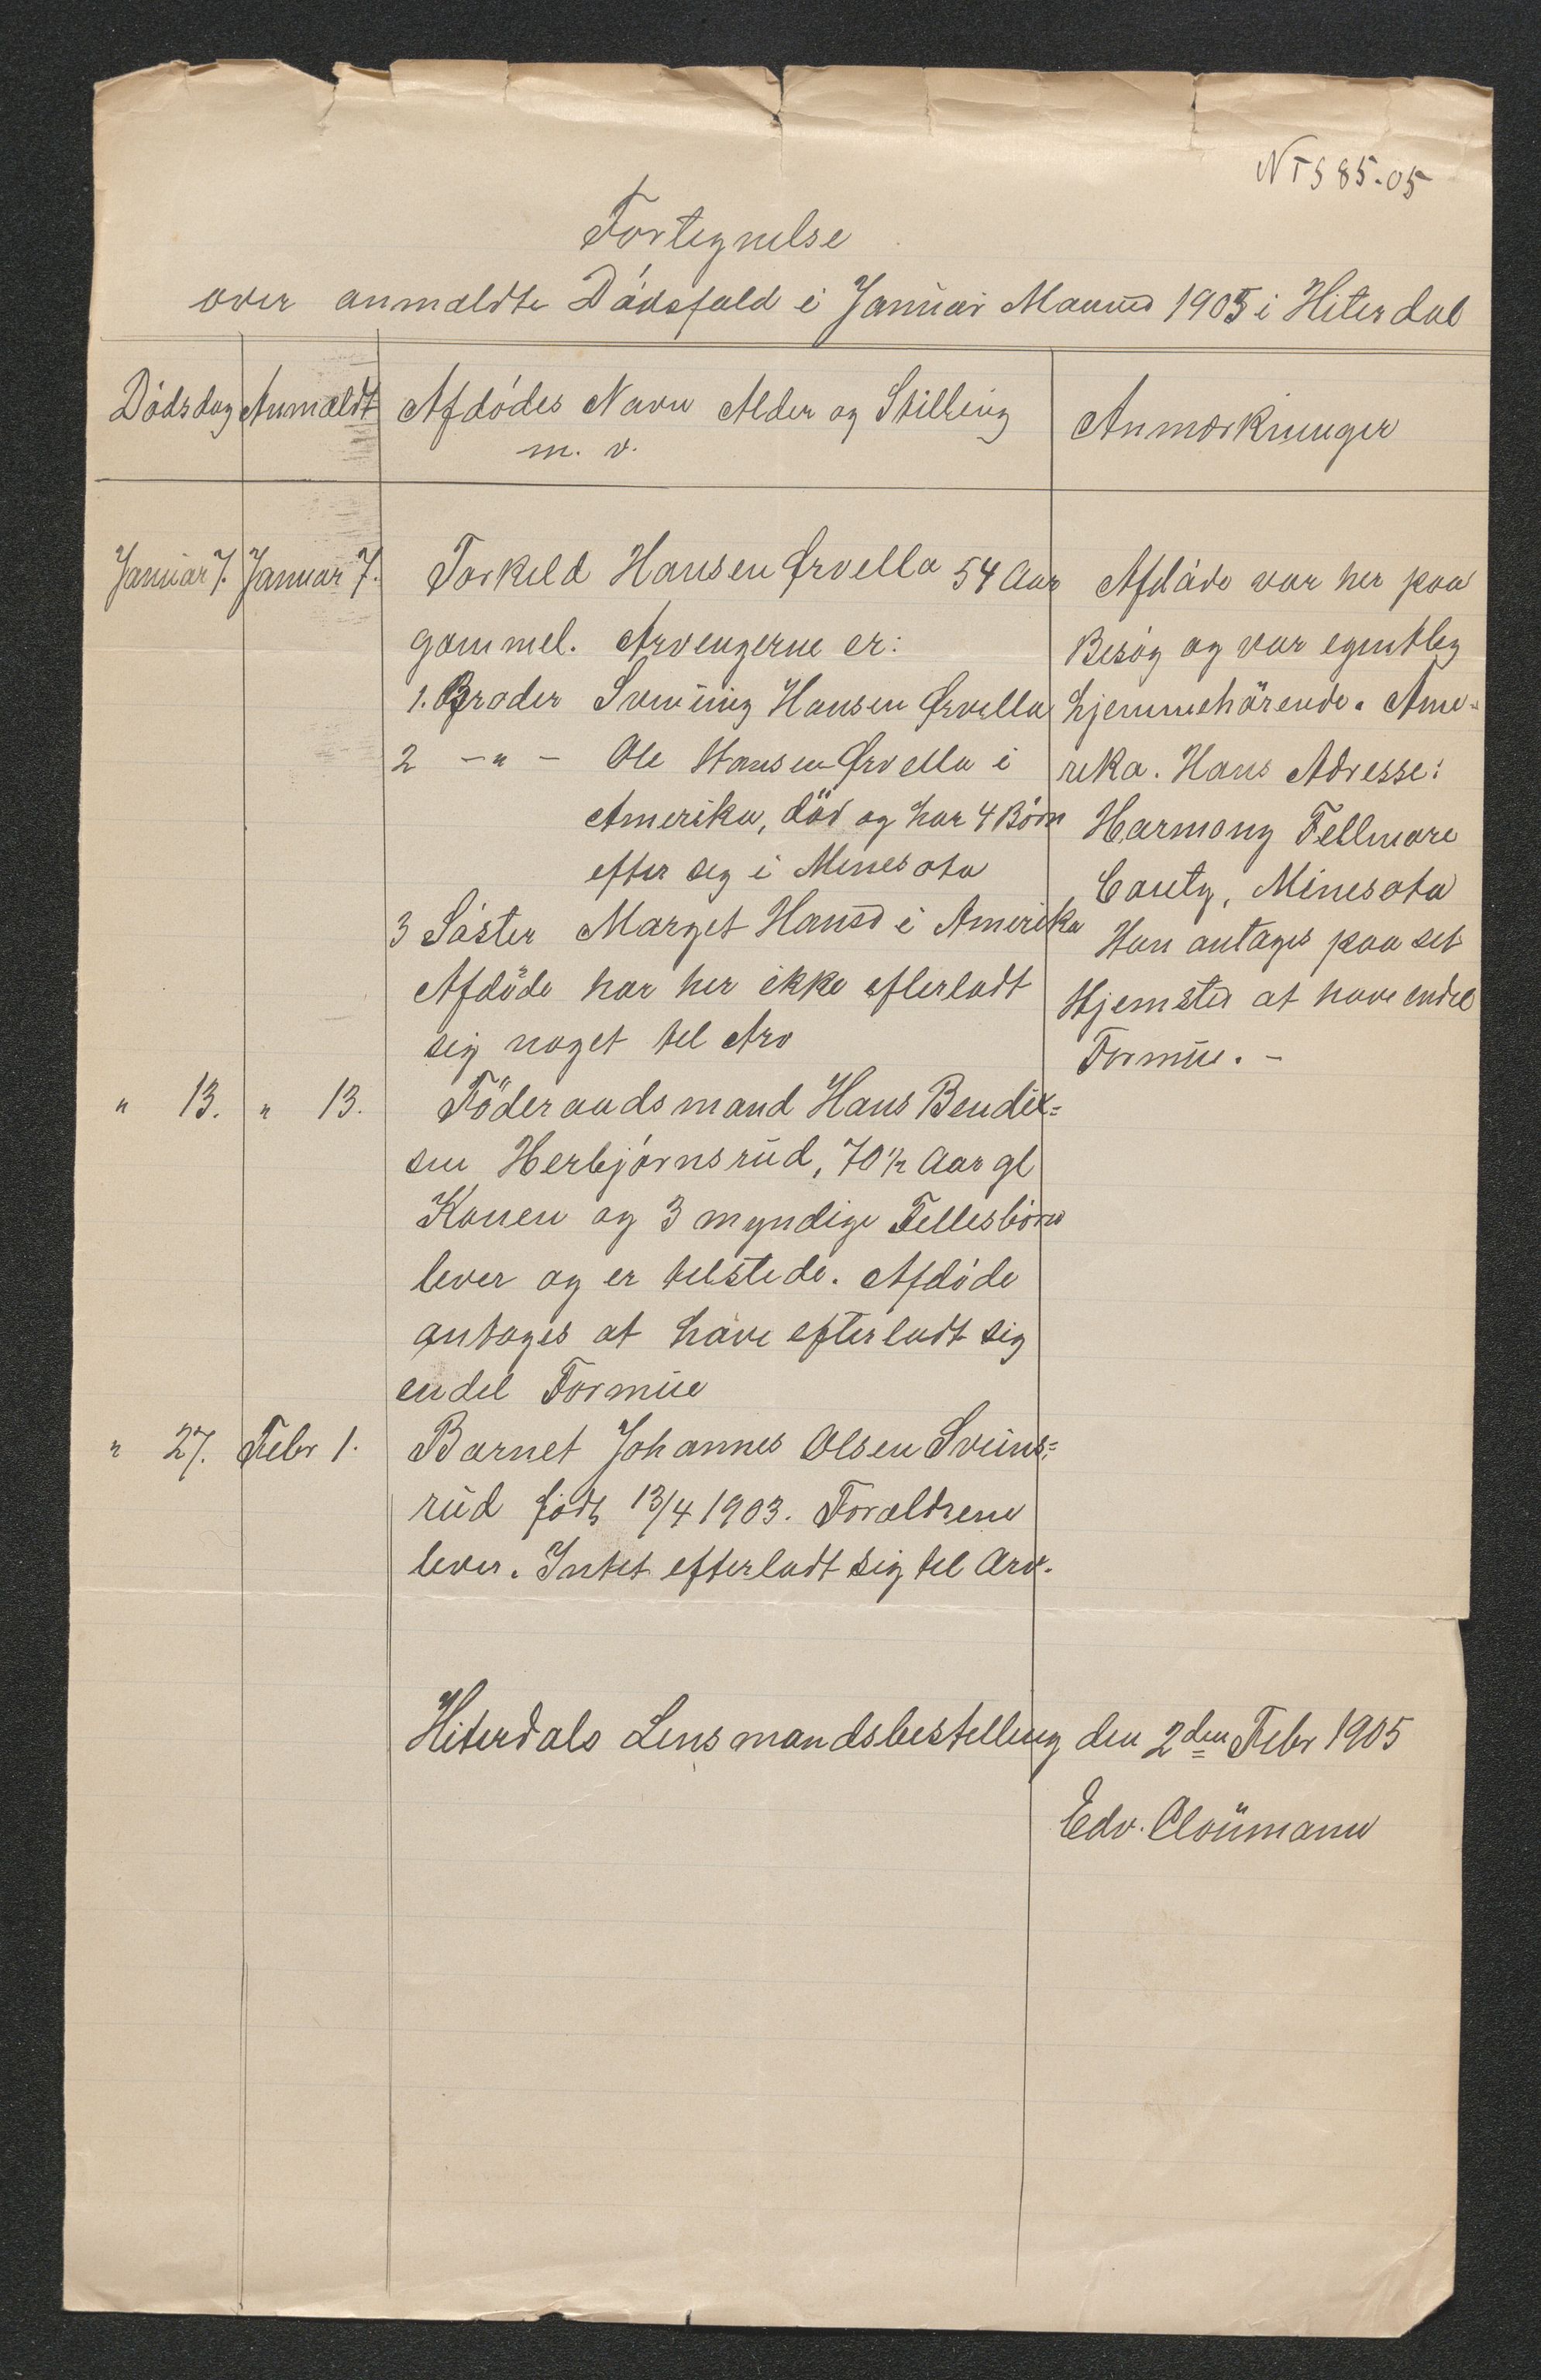 NTS 85-05
Fortegnelse
over anmeldte Dödsfald i Januar Maaned 1905 i Hiterdal
Dödsdag Anmeldt Afdödes Navn Alder og Stilling
m. v.
Anmærkninger
Januar 7. Januar 7. Torkild Hansen Ørvella 54 Aar
gammel. Arvengerne er:
1. Broder Svenning Hansen Ørvella
2 -"- Ole Hansen Ørvella i
Amerika, död og har 4 Börn
efter sig i Minesota
3 Söster Marget Hansd i Amerika
Afdöde har her ikke efterladt
sig noget til Arv
Afdöde var her paa
Besög og var egentleg
hjemmehörende. Ame-
rika. Hans Adresse:
Harmony Fellmore
Couty, Minesota
Han antages paa set
Hjemsted at have endel
Formue. -
" 13. " 13. Föderaadsmand Hans Bendik=
sen Herbjörnsrud, 70½ Aar gl
Konen og 3 myndige Fellesbörn
lever og er telstede. Afdöde
antages at have efterladt sig
endel Formue
" 27. Febr 1. Barnet Johannes Olsen Sveins=
rud födt 13/4 1903. Foreldrene
lever. Intet efterladt sig tel Arv.
Hiterdals Lensmandsbestelling den 2den Febr 1905
Edv. Cloumann